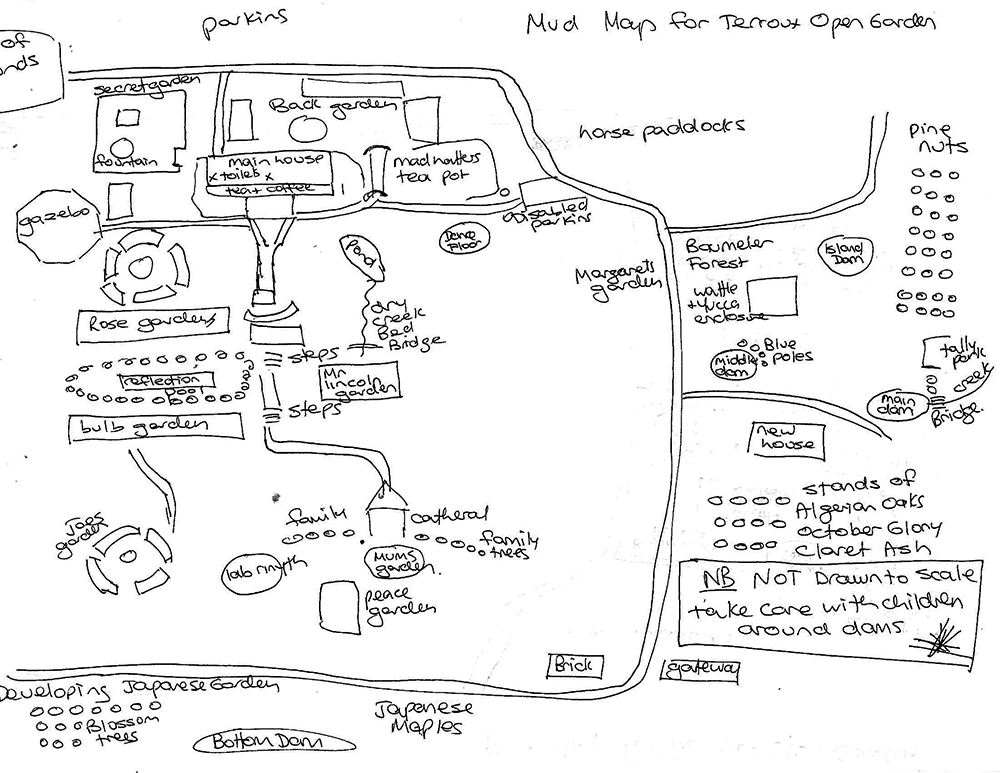 parking
Mud Maps for Terroux Open Garden
of
nds
secret garden
fountain
Back garden
main house
x toilets x
tea + coffee
mad hatters
tea pot
horse paddocks
pine
nuts
gazebo
Disabled
parking
Dance
Floor
Pond
Margarets
garden
Baumeler
Forest
Island
Dam
wattle
+ yucca
enclosure
Dry
creek
Bed
Bridge
Rose gardens
steps
reflection
pool
Mr
lincoln
garden
steps
bulb garden
Blue
poles
Middle
dam
tally
creek
main
dam
Bridge.
new
house
stands of
Algerian Oaks
October Glory
Claret Ash
Joes
garden
family
catheral
family
trees
labrinyth
Mums
garden.
peace
garden
NB NOT Drawn to scale
take care with children
around dams
Brick
gateway
Developing Japanese Garden
Blossom
trees
Japanese
Maples
Bottom Dam